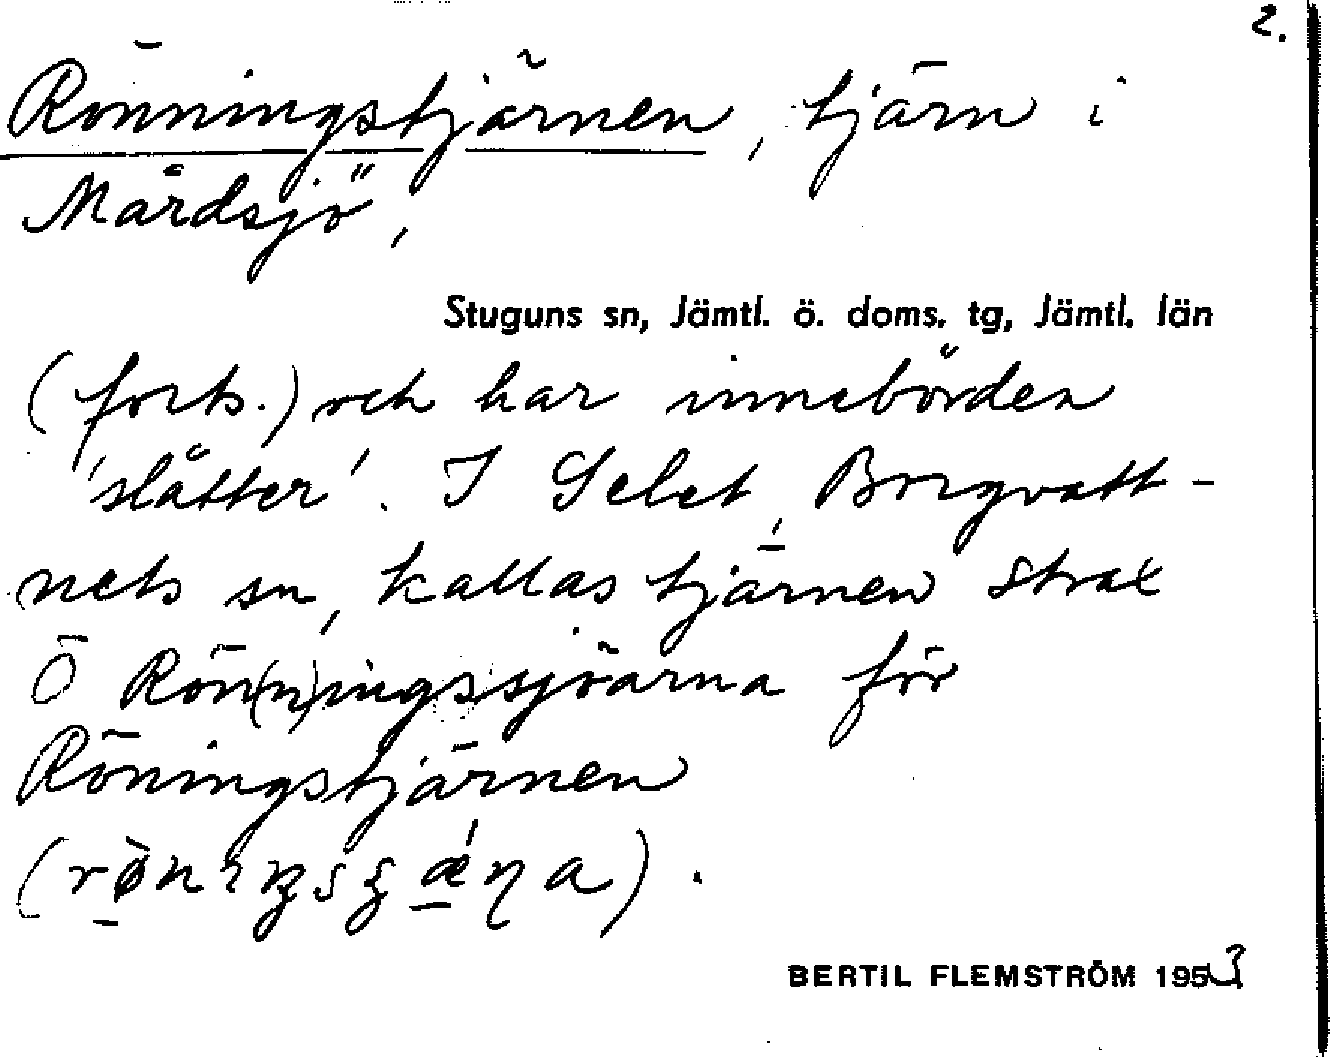 2.
Rönningstjärnen, tjärn i
Mårdsjö,
Stuguns sn, Jämtl. ö. doms. tg, Jämtl. län
(forts.) och har innebörden
'slåtter'. I Selet, Borgvatt-
nets sn, kallas tjärnen strax
Ö Rön(n)ingssjöarna för
Röningstjärnen
BERTIL FLEMSTRÖM 1953